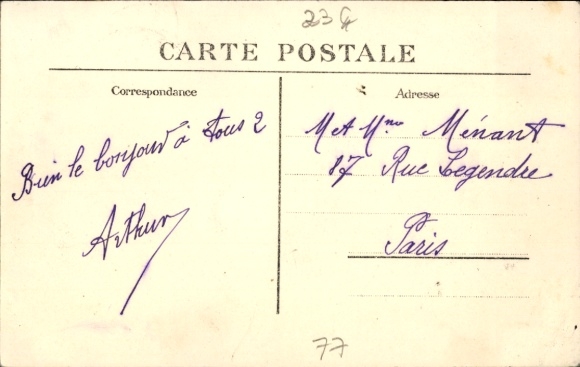 23 
CARTE POSTALE
Correspondance
Adresse
Bien le bonjour à tous 2
Arthur
M et Mme Ménant
87 Rue Legendre
Paris
77